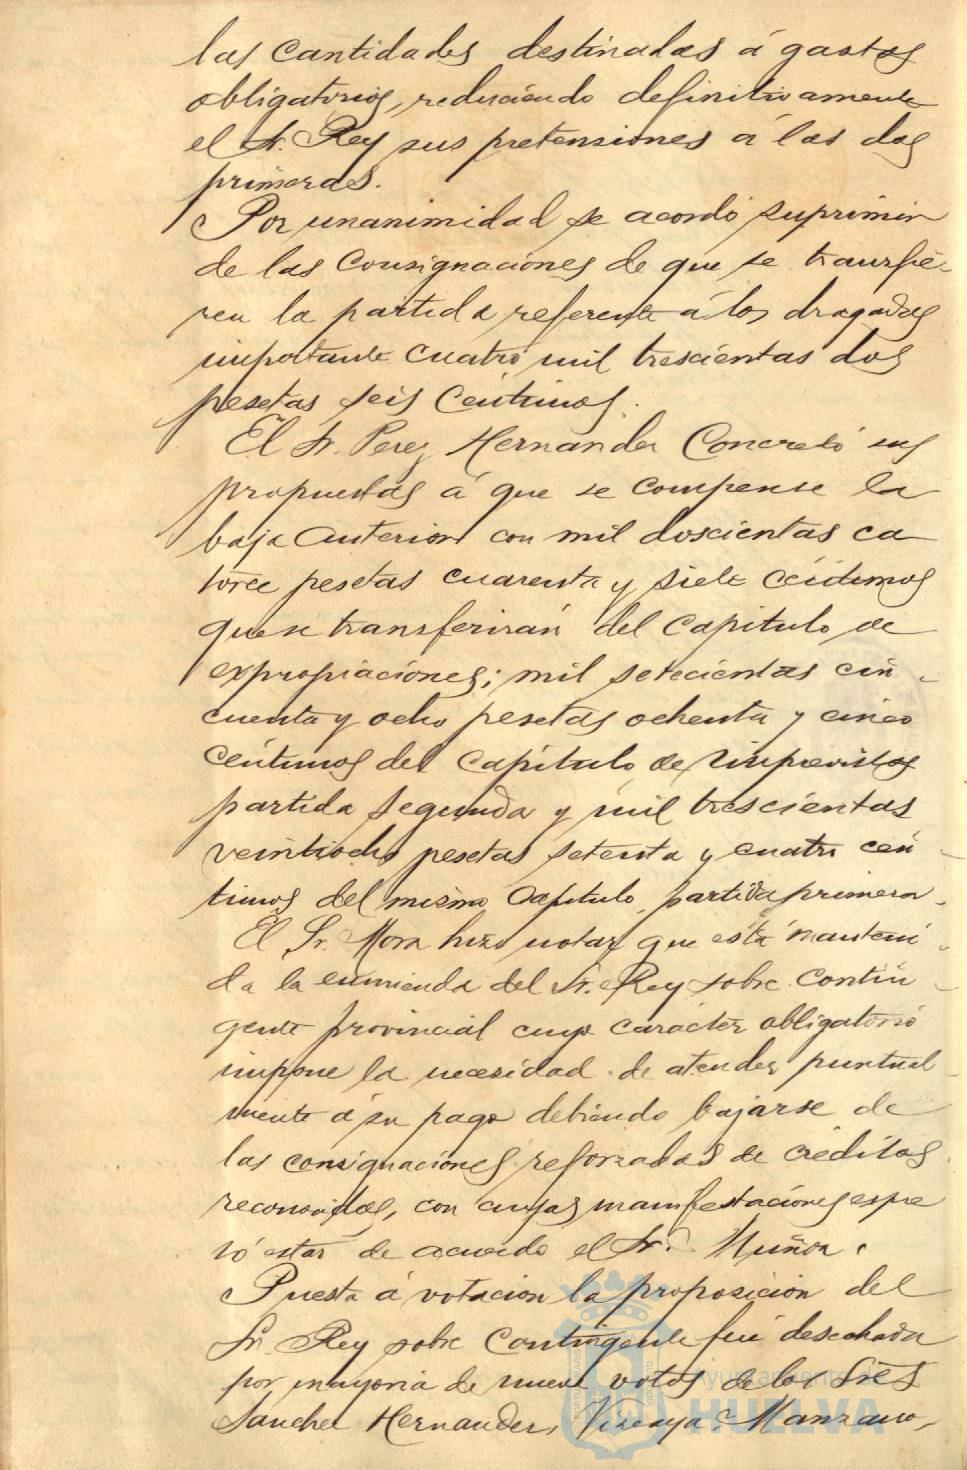 las cantidades destinadas á gastos
obligatorios, reduciendo definitivamente
el Sr. Rey sus pretensiones á las dos
primeras.
Por unanimidad se acordó suprimir
de las consignaciones de que se transfie-
ren la partida referente á los dragados
importante cuatro mil trescientas dos
pesetas seis céntimos.
El Sr. Perez Hernandez concretó sus
propuestas á que se compense la
baja anterior con mil doscientas ca
torce pesetas cuarenta y siete céntimos
que se transferirán del capitulo de
expropiaciones; mil setecientas cin-
cuenta y ocho pesetas ochenta y cinco
céntimos del capítulo de Imprevistos
partida segunda y mil trescientas
veintiocho pesetas setenta y cuatro cén-
timos del mismo capitulo, partida primera.
El Sr. Mora hizo notar que está manteni-
da la enmienda del Sr. Rey sobre contin-
gente provincial cuyo carácter obligatorio
impone la necesidad de atender puntual
mente á su pago debiendo bajarse de
las consignaciones reforzadas de créditos
reconocidos, con cuyas manifestaciones expre
só estar de acuerdo el Sr. Muñoz.
Puesta á votación la proposición del
Sr. Rey sobre contingente fué desechada
por mayoría de nueve votos de los Sres
Sanchez Hernandez, Vizcaya, Manzano,
Ayuntamiento de
HUELVA